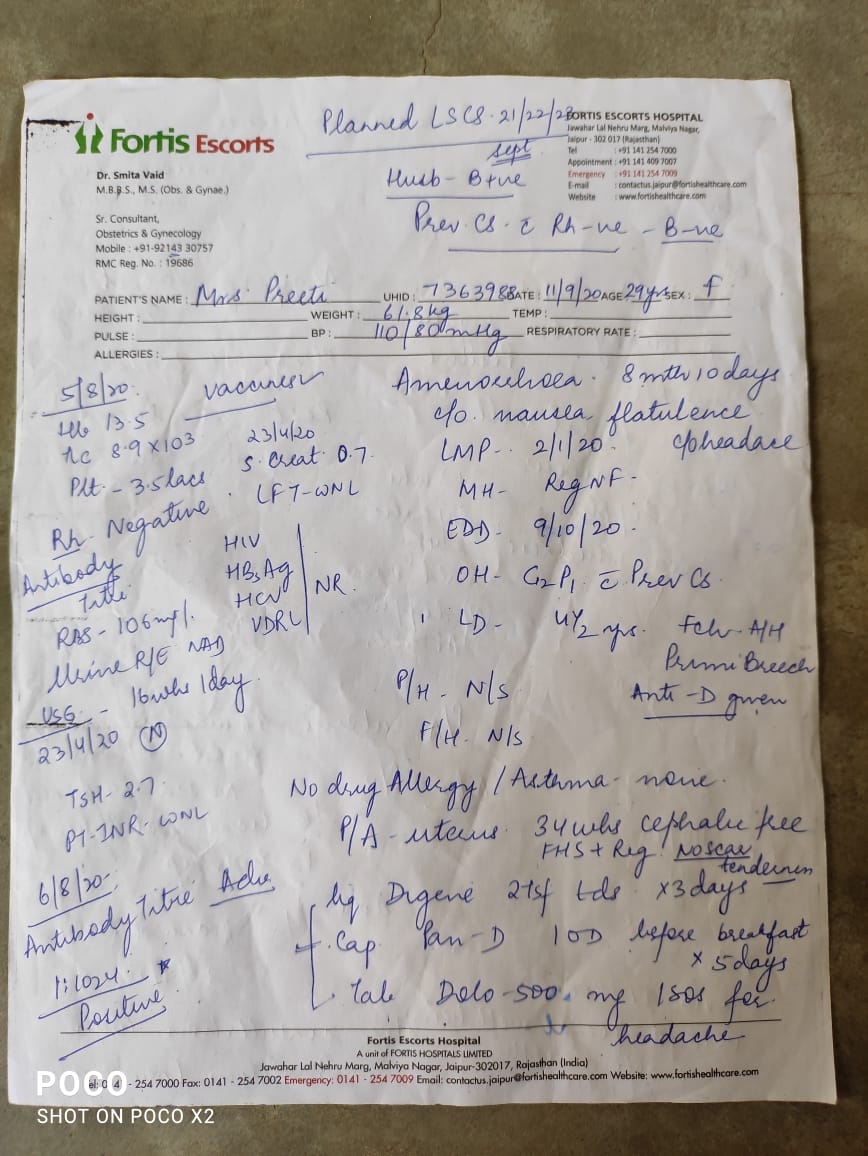 Planned LSCS. 21/22/23
sept
Husb - B+ve
Prev. CS. c̄ Rh-ve - B-ve
Fortis Escorts
Dr. Smita Vaid
M.B.B.S., M.S. (Obs. & Gynae.)
Sr. Consultant,
Obstetrics & Gynecology
Mobile : +91-92143 30757
RMC Reg. No. : 19686
FORTIS ESCORTS HOSPITAL
Jawahar Lal Nehru Marg, Malviya Nagar,
Jaipur - 302 017 (Rajasthan)
Tel : +91 141 254 7000
Appointment : +91 141 409 7007
Emergency : +91 141 254 7009
E-mail : contactus.jaipur@fortishealthcare.com
Website : www.fortishealthcare.com
PATIENT'S NAME : Mrs. Preeti UHID : 7363988 DATE : 11/9/20 AGE 29yrs SEX : f
HEIGHT : WEIGHT : 61.8kg TEMP :
PULSE : BP : 110/80mmHg RESPIRATORY RATE :
ALLERGIES :
5/8/20. vaccines
Hb 13.5
Tlc 8.9 x 103
Plt - 3.5 lacs
Rh - Negative
Antibody
Titre
RBS - 106mg/.
Urine R/E NAD
USG - 16wks 1day
23/4/20 (N)
TSH - 2.7
PT-INR - WNL
6/8/20 -
Antibody Titre
1:1024. *
Positive
23/4/20
S. Creat 0.7.
LFT - WNL
HIV
HBsAg
HCV
VDRL
NR.
Amenorrhoea. 8 mth 10 days
c/o. nausea flatulence
LMP - 2/1/20. c/o headace
MH - Reg NF -
EDD - 9/10/20 -
OH - G2P1 c̄ Prev CS.
LD - 4 1/2 yrs. Fch - A/H
Primi Breech
Anti - D given
P/H - N/S
F/H. N/S
No drug Allergy / Asthma - none.
P/A - uterus 34 wks cephalic free
FHS + Reg. No scar
tenderness
Adv
liq Digene 2tsf tds x 3 days
Cap. Pan-D 1 OD before breakfast
x 5 days
Tab Dolo - 500 mg 1 SOS for
headache
Fortis Escorts Hospital
A unit of FORTIS HOSPITALS LIMITED
Jawahar Lal Nehru Marg, Malviya Nagar, Jaipur-302017, Rajasthan (India)
Tel: 0141 - 254 7000 Fax: 0141 - 254 7002 Emergency: 0141 - 254 7009 Email: contactus.jaipur@fortishealthcare.com Website: www.fortishealthcare.com
POCO
SHOT ON POCO X2